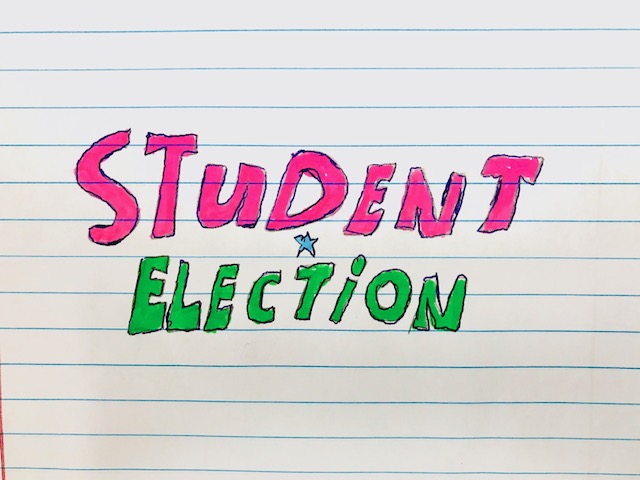 STUDENT
ELECTION